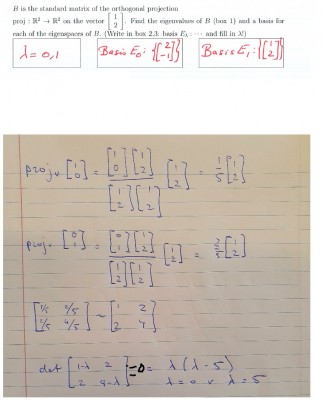 B is the standard matrix of the orthogonal projection
proj : ℝ² → ℝ² on the vector [1; 2]. Find the eigenvalues of B (box 1) and a basis for
each of the eigenspaces of B. (Write in box 2,3: basis E_λ : ··· and fill in λ!)
λ = 0,1
Basis E₀ : {[2; -1]}
Basis E₁ : {[1; 2]}
proj_v [1; 0] = [1; 0][1; 2] / [1; 2][1; 2] [1; 2] = 1/5 [1; 2]
proj_v [0; 1] = [0; 1][1; 2] / [1; 2][1; 2] [1; 2] = 2/5 [1; 2]
[1/5 2/5; 2/5 4/5] ~ [1 2; 2 4]
det [1-λ 2; 2 4-λ] = 0 = λ(λ-5)
λ = 0 ∨ λ = 5